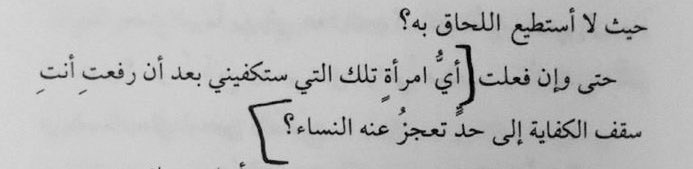 حيث لا أستطيع اللحاق به؟
حتى وإن فعلت أيُّ امرأةٍ تلك التي ستكفيني بعد أن رفعتِ أنتِ
سقف الكفاية إلى حدٍّ تعجزُ عنه النساء؟